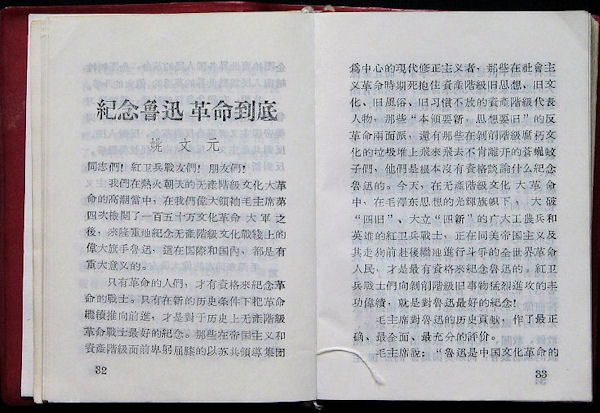 紀念魯迅 革命到底
姚文元
同志們！紅卫兵戰友們！朋友們！
我們在熱火朝天的无產階級文化大革
命的高潮當中，在我們偉大領袖毛主席第
四次檢閱了一百五十万文化革命大軍之
後，來隆重地紀念无產階級文化戰綫上的
偉大旗手魯迅，這在国際和国內，都是有
重大意义的。
只有革命的人們，才有資格來紀念革
命的戰士。只有在新的历史条件下把革命
繼續推向前進，才是對于历史上无產階級
革命戰士最好的紀念。那些在帝国主义和
資產階級面前卑躬屈膝的以苏共領導集团
32
爲中心的現代修正主义者，那些在社會主
义革命時期死抱住資產階級旧思想、旧文
化、旧風俗、旧习慣不放的資產階級代表
人物，那些“本領要新，思想要旧”的反
革命兩面派，還有那些在剝削階級腐朽文
化的垃圾堆上飛來飛去不肯離开的蒼蠅蚊
子們，他們是根本沒有資格談論什么紀念
魯迅的。今天，在无產階級文化大革命
中，在毛澤东思想的光輝旗幟下，大破
“四旧”、大立“四新”的广大工農兵和
英雄的紅卫兵戰士，正在同美帝国主义及
其走狗前赴後繼地進行斗爭的全世界革命
人民，才是最有資格來紀念魯迅的。紅卫
兵戰士們向剝削階級旧事物猛烈進攻的丰
功偉績，就是對魯迅最好的紀念！
毛主席對魯迅的历史貢献，作了最正
確、最全面、最充分的評价。
毛主席說：“魯迅是中国文化革命的
33